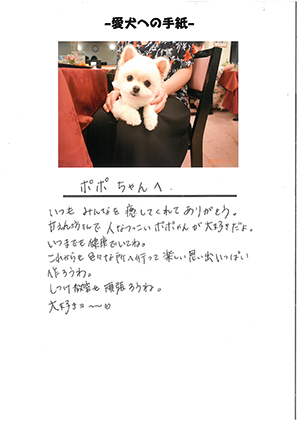 -愛犬への手紙-
ポポちゃんへ.
いつも みんなを 癒してくれて ありがとう。
甘えん坊さんで 人なつっこい ポポちゃんが 大好きだよ。
いつまでも健康でいてね。
これからも 色々な所へ行って 楽しい思い出いっぱい
作ろうね。
しつけ教室も 頑張ろうね。
大好き